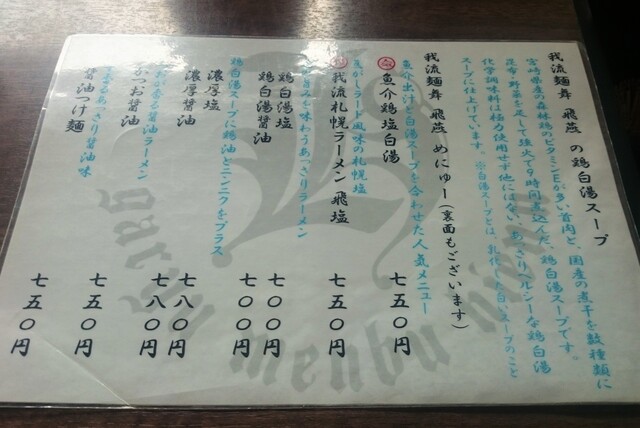 我流麺舞 飛燕 の鶏白湯スープ
宮崎県産の森林鶏のビタミンEが多い首肉と、国産の煮干を数種類に
昆布・野菜を足して強火で9時間煮込んだ、鶏白湯スープです。
化学調味料は極力使用せず他にはない、あっさりヘルシーな鶏白湯
スープに仕上げています。※白湯スープとは、乳化した白いスープのこと
我流麺舞 飛燕 めにゅー(裏面もございます)
魚介出汁と鶏白湯スープを合わせた人気メニュー
魚介鶏塩白湯 七五〇円
焦がしラード風味の札幌塩
我流札幌ラーメン 飛塩 七五〇円
を味わうあっさりラーメン
鶏白湯塩 七〇〇円
鶏白湯醤油 七〇〇円
鶏白湯スープに鶏油とニンニクをプラス
濃厚塩 七八〇円
濃厚醤油 七八〇円
醤油ラーメン
かつお醤油 七五〇円
あっさり醤油味
醤油つけ麺 七五〇円
menbu